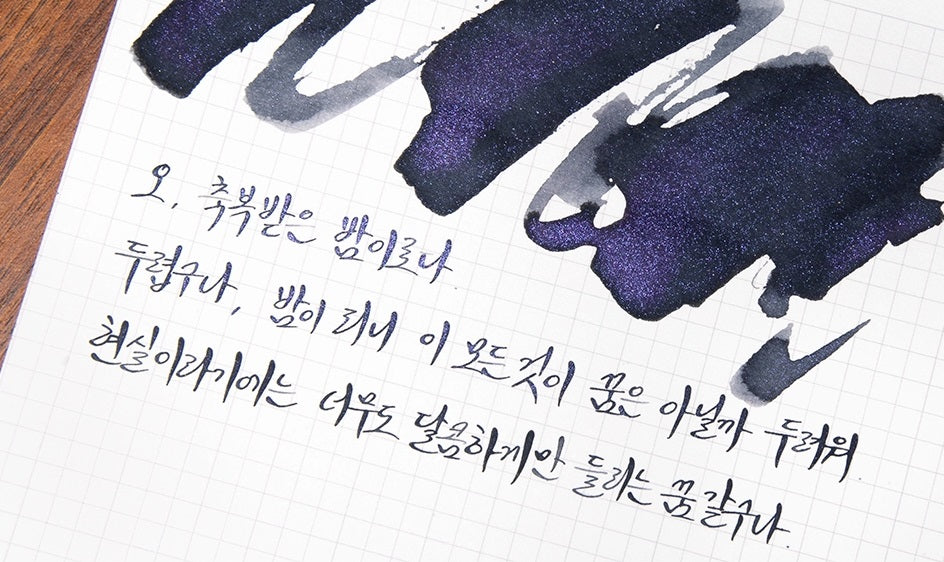 오, 축복받은 밤이로나
두렵구나, 밤이 되니 이 모든것이 꿈은 아닐까 두려워
현실이라기에는 너무도 달콤하게만 들리는 꿈같구나.